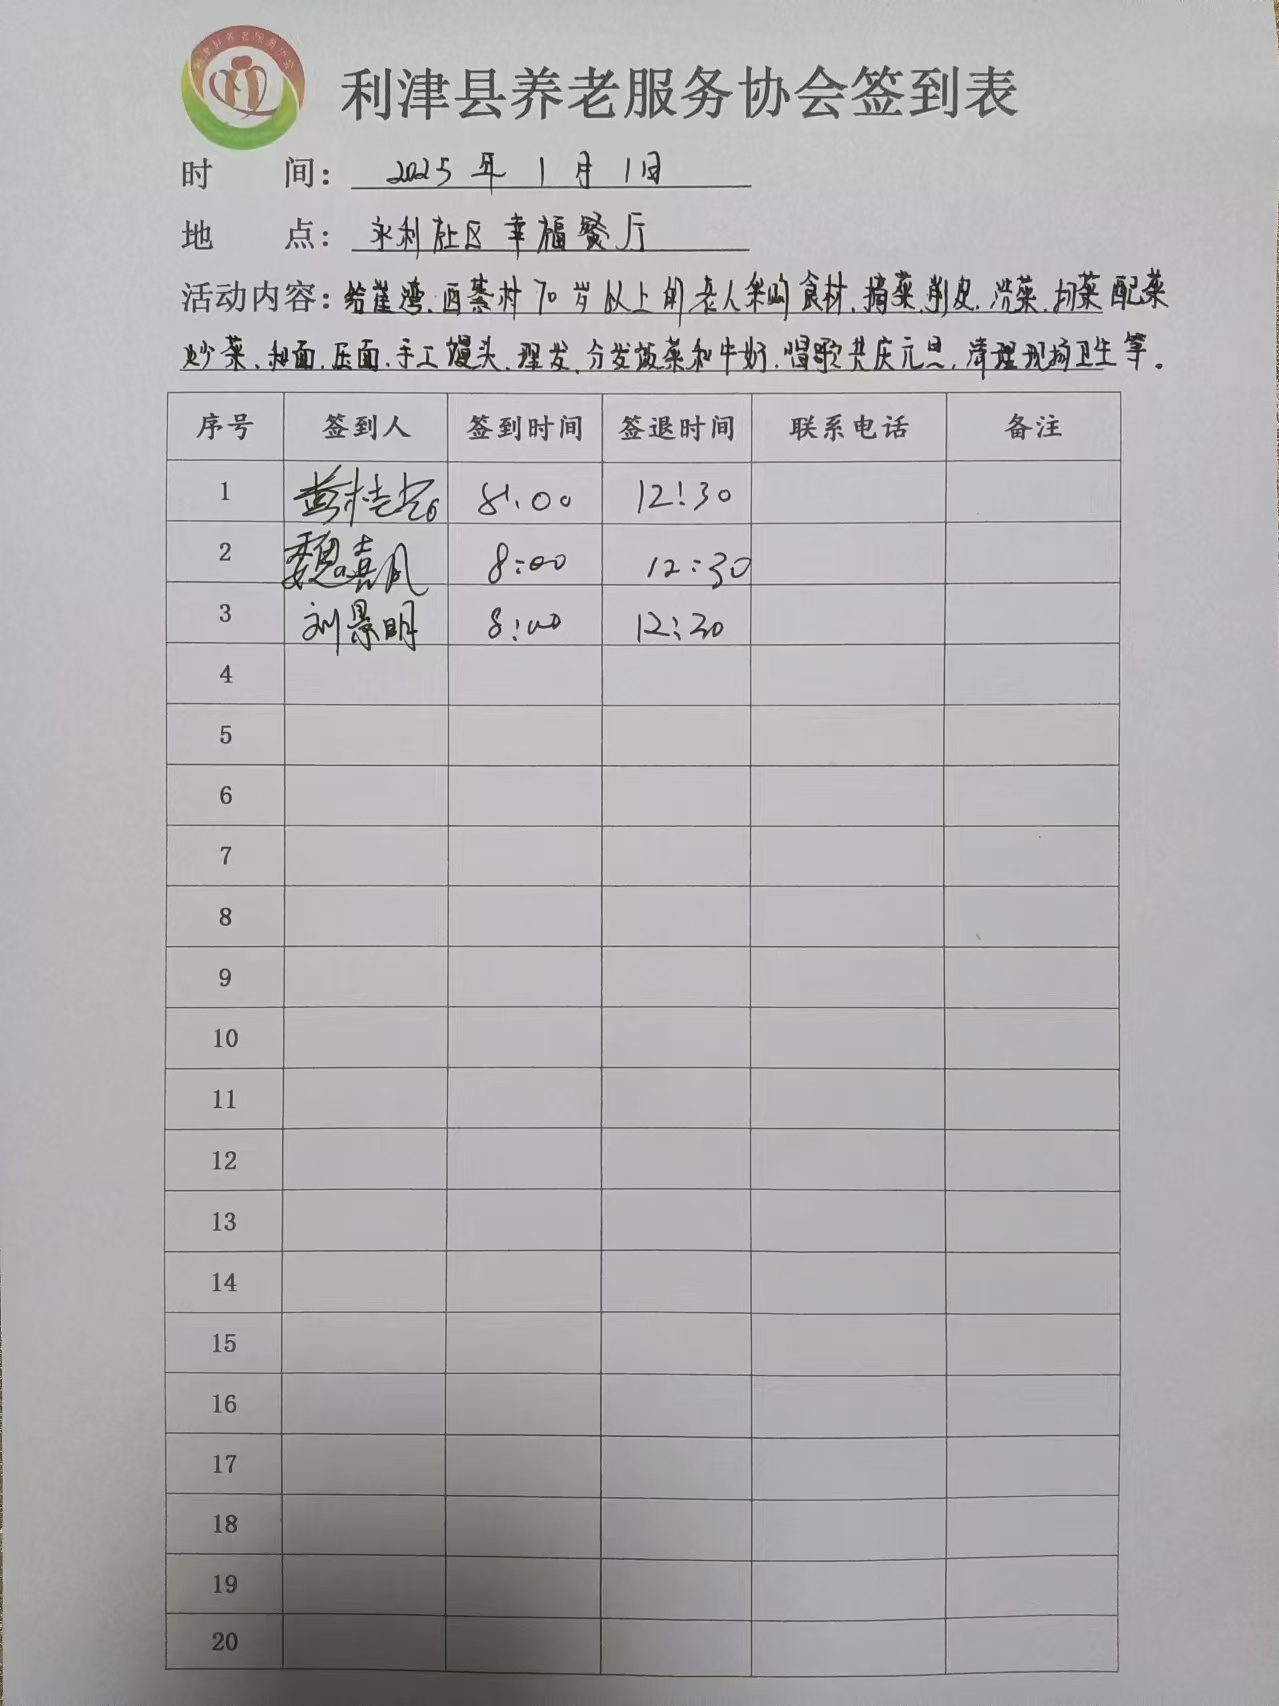 利津县养老服务协会
利津县养老服务协会签到表
时 间：2025年1月1日
地 点：永利社区幸福餐厅
活动内容：给崔湾、西綦村70岁以上的老人采购食材、摘菜、削皮、洗菜、切菜配菜
炒菜、和面、压面、手工馒头、理发、分发饭菜和牛奶、唱歌共庆元旦、清理现场卫生等。
序号 签到人 签到时间 签退时间 联系电话 备注
1 8:00 12:30
2 魏嘉凤 8:00 12:30
3 刘景明 8:00 12:30
4
5
6
7
8
9
10
11
12
13
14
15
16
17
18
19
20